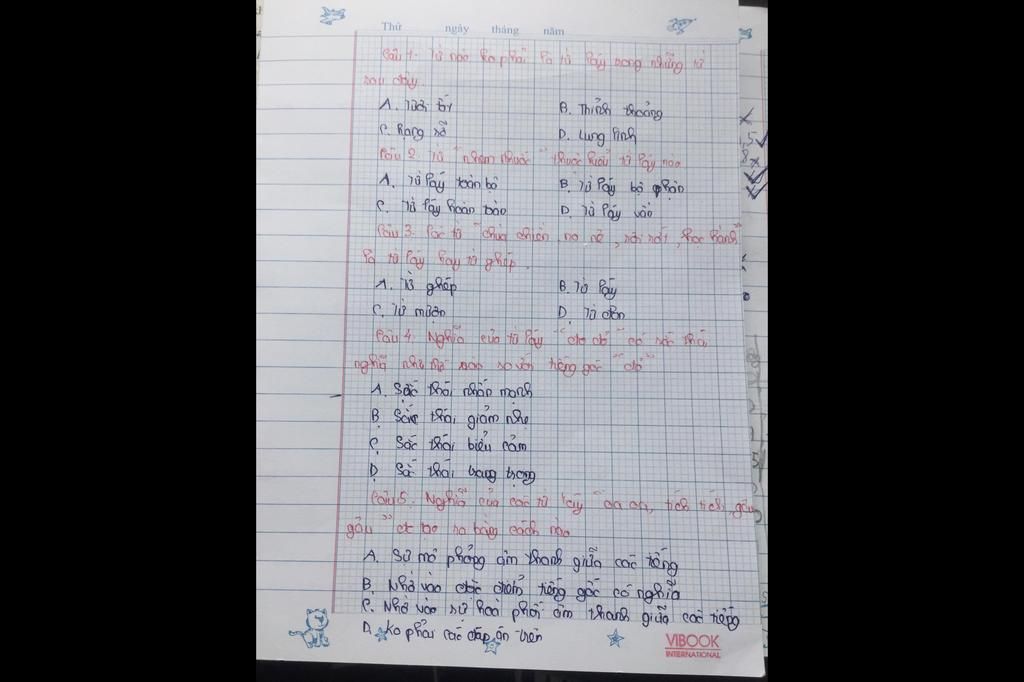 Thứ ngày tháng năm
Câu 1. Từ nào ko phải là từ láy trong những từ
sau đây.
A. Tươi tốt
B. Thỉnh thoảng
C. Rạng rỡ
D. Lung linh
Câu 2. Từ " nhem nhuốc " thuộc kiểu từ láy nào
A. Từ láy toàn bộ
B. Từ láy bộ phận
C. Từ láy hoàn toàn
D. Từ láy vần
Câu 3. Các từ " chùa chiền, no nê, rơi rớt, học hành"
là từ láy hay từ ghép.
A. Từ ghép
B. Từ láy
C. Từ mượn
D. Từ đơn
Câu 4. Nghĩa của từ láy " đo đỏ " có sắc thái
nghĩa như thế nào so với tiếng gốc " đỏ "
A. Sắc thái nhấn mạnh
B. Sắc thái giảm nhẹ
C. Sắc thái biểu cảm
D. Sắc thái trang trọng
Câu 5. Nghĩa của các từ láy " oa oa, tích tích, gâu
gâu " đc tạo ra bằng cách nào
A. Sự mô phỏng âm thanh giữa các tiếng
B. Nhờ vào đặc điểm tiếng gốc có nghĩa
C. Nhờ vào sự hoà phối âm thanh giữa các tiếng
D. Ko phải các đáp án trên
VIBOOK
INTERNATIONAL